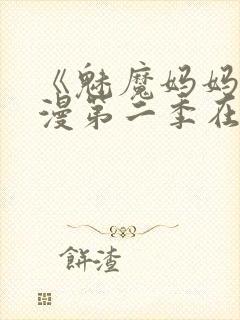 《魅魔妈妈
漫第二季在
餅渣